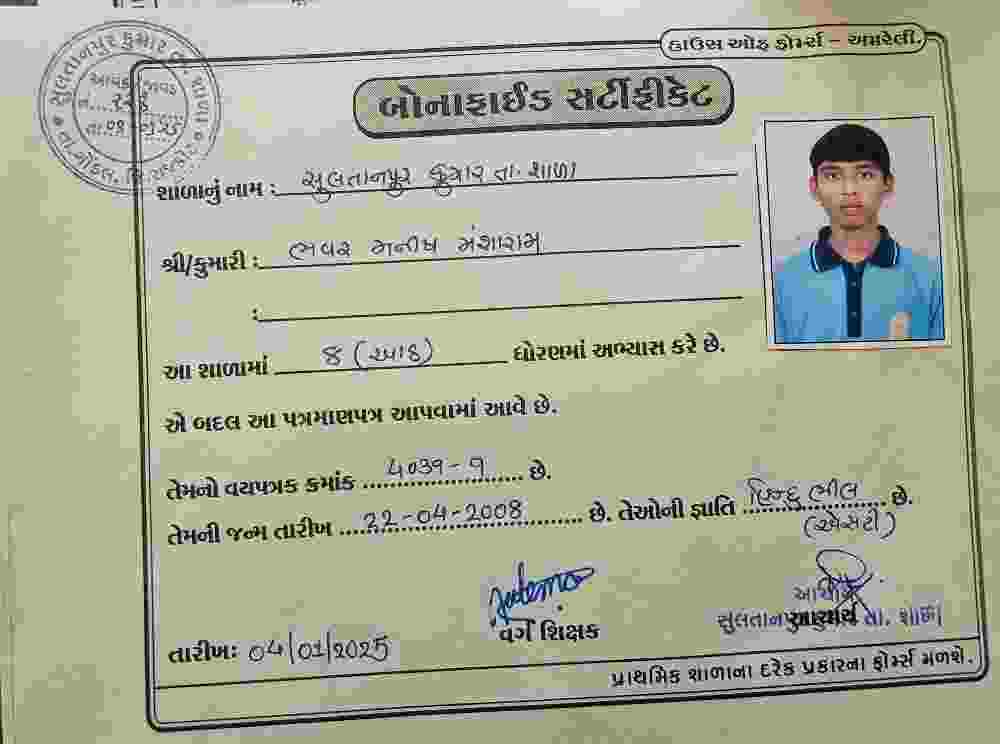 હાઉસ ઓફ ફોર્મ્સ – અમરેલી.
બોનાફાઈડ સર્ટીફીકેટ
સુલતાનપુર કુમાર તા. શાળા
આવક જાવક
તા. ગોંડલ, જિ. રાજકોટ
શાળાનું નામ : સુલતાનપુર કુમાર તા. શાળા
શ્રી/કુમારી : ભવર મનીષ મંશારામ
:
આ શાળામાં 8 (આઠ) ધોરણમાં અભ્યાસ કરે છે.
એ બદલ આ પત્રમાણપત્ર આપવામાં આવે છે.
તેમનો વયપત્રક ક્રમાંક 4039-9 છે.
તેમની જન્મ તારીખ 22-04-2008 છે. તેઓની જ્ઞાતિ હિન્દુ ભીલ છે.
(એસટી)
વર્ગ શિક્ષક
આચાર્ય
સુલતાનપુર તા. શાળા
તારીખ: 04/01/2025
પ્રાથમિક શાળાના દરેક પ્રકારના ફોર્મ્સ મળશે.